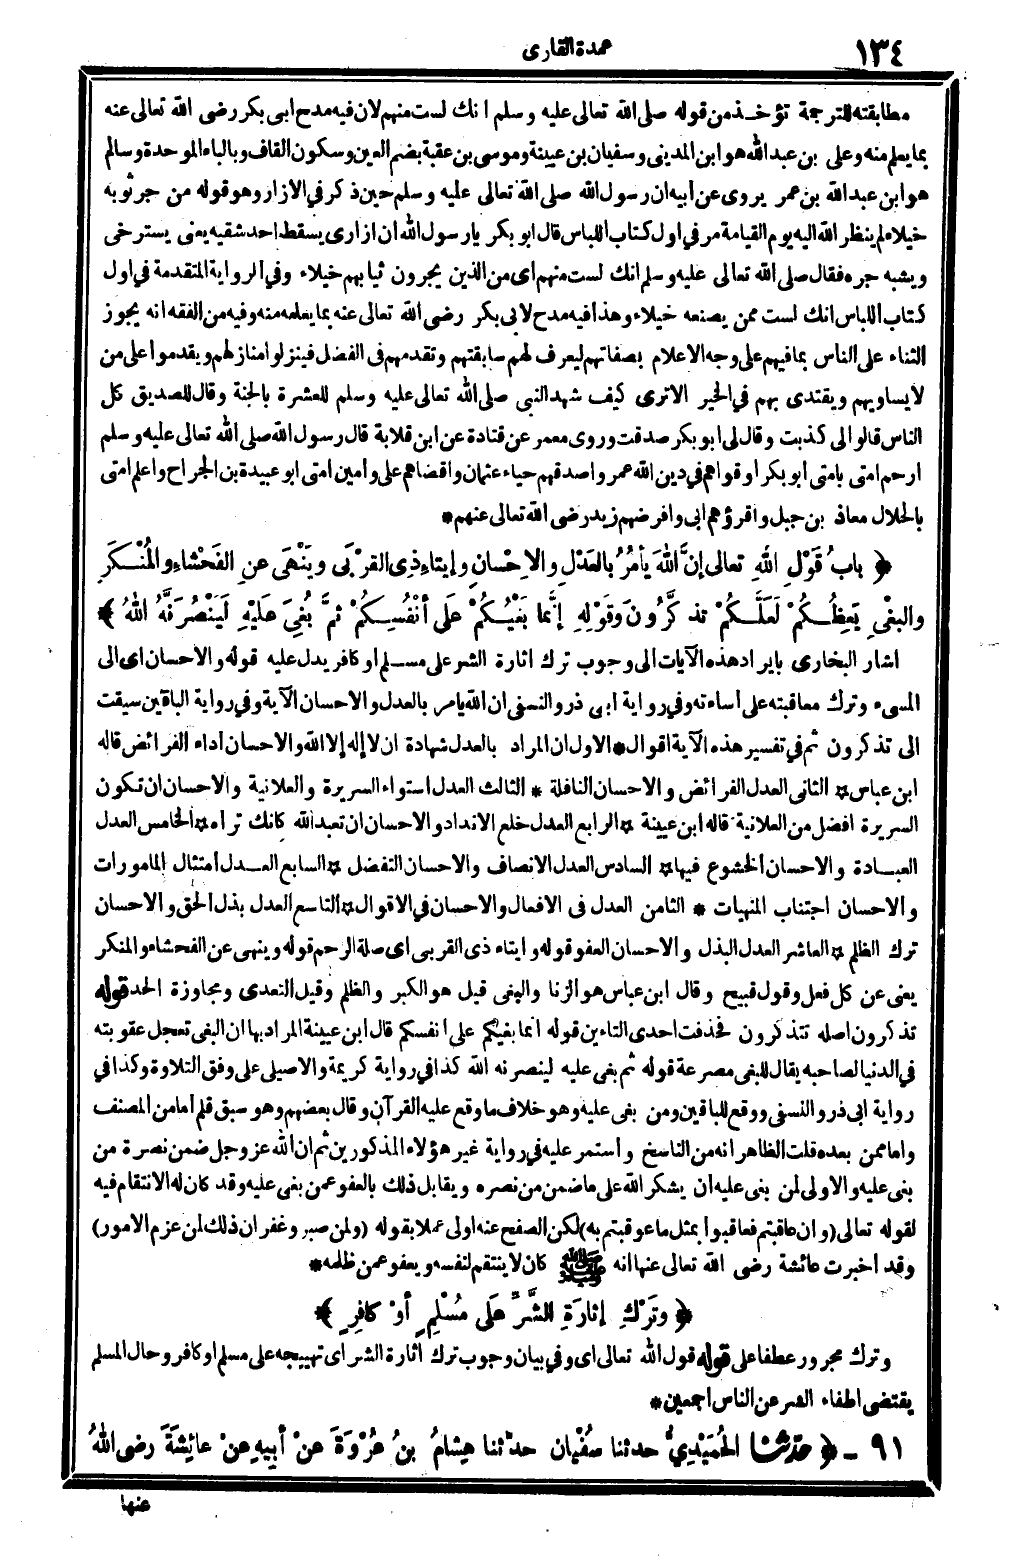 ١٣٤
عمدة القارى
مطابقته للترجمة تؤخذ من قوله صلى الله تعالى عليه وسلم انك لست منهم لان فيه مدح ابى بكر رضى الله تعالى عنه
بما يعلم منه وعلى بن عبد الله هو ابن المدينى وسفيان بن عيينة وموسى بن عقبة بضم العين وسكون القاف وبالباء الموحدة وسالم
هو ابن عبد الله بن عمر يروى عن أبيه ان رسول الله صلى الله تعالى عليه وسلم حين ذكر في الازار وهو قوله من جر ثوبه
خيلاء لم ينظر الله اليه يوم القيامة مر في اول كتاب اللباس قال ابو بكر يا رسول الله ان ازارى يسقط احد شقيه يعنى يسترخى
ويشبه جره فقال صلى الله تعالى عليه وسلم انك لست منهم اى من الذين يجرون ثيابهم خيلاء وفي الرواية المتقدمة في اول
كتاب اللباس انك لست ممن يصنعه خيلاء وهذا فيه مدح لابى بكر رضى الله تعالى عنه بما يعلمه منه وفيه من الفقه انه يجوز
الثناء على الناس بما فيهم على وجه الاعلام بصفاتهم ليعرف لهم سابقتهم وتقدمهم فى الفضل فينزلوا منازلهم ويقدموا على من
لا يساويهم ويقتدى بهم في الخير الاترى كيف شهد النبى صلى الله تعالى عليه وسلم للعشرة بالجنة وقال للصديق كل
الناس قالوا لى كذبت وقال لى ابو بكر صدقت وروى معمر عن قتادة عن ابن قلابة قال رسول الله صلى الله تعالى عليه وسلم
ارحم امتى بامتى أبو بكر أوقواهم في دين الله عمر واصدقهم حياء عثمان واقضاهم على وأمين امتى ابو عبيدة بن الجراح واعلم امتى
بالحلال معاذ بن جبل واقرؤهم ابى وافرضهم زيد رضى الله تعالى عنهم *
﴿ بابُ قَوْلِ اللهِ تعالى إنَّ اللهَ يأمُرُ بالعَدْلِ والاِحْسانِ وإيتاءِ ذِى القرْبَى ويَنْهَى عنِ الفَحْشاءِ والمُنْكَرِ
والبغْىِ يَعِظُكُمْ لَعَلَّكُمْ تذكَّرُونَ وقَوْلِهِ إنَّما بَغْيُكُمْ عَلَى أنْفُسِكُمْ ثمَّ بُغِىَ عَلَيْهِ لَيَنْصُرَنَّهُ اللهُ ﴾
اشار البخارى بايراد هذه الآيات الى وجوب ترك اثارة الشر على مسلم او كافر يدل عليه قوله والاحسان اى الى
المسىء وترك معاقبته على أساءته وفي رواية ابى ذر والنسفى ان الله يامر بالعدل والاحسان الآية وفي رواية الباقين سيقت
الى تذكرون ثم في تفسير هذه الآية اقوال * الاول ان المراد بالعدل شهادة ان لا إله إلا الله والاحسان أداء الفرائض قاله
ابن عباس * الثانى العدل الفرائض والاحسان النافلة * الثالث العدل استواء السريرة والعلانية والاحسان ان تكون
السريرة افضل من العلانية قاله ابن عيينة * الرابع العدل خلع الانداد والاحسان ان تعبد الله كانك تراه * الخامس العدل
العبادة والاحسان الخشوع فيها * السادس العدل الانصاف والاحسان التفضل * السابع العدل أمتثال المامورات
والاحسان اجتناب المنهيات * الثامن العدل فى الافعال والاحسان في الاقوال * التاسع العدل بذل الحق والاحسان
ترك الظلم * العاشر العدل البذل والاحسان العفو قوله وايتاء ذى القربى اى صلة الرحم قوله وينهى عن الفحشاء والمنكر
يعنى عن كل فعل وقول قبيح وقال ابن عباس هو الزنا والبغى قيل هو الكبر والظلم وقيل التعدى ومجاوزة الحد قوله
تذكرون اصله تتذكرون فحذفت احدى التاءين قوله انما بغيكم على انفسكم قال ابن عيينة المراد بها ان البغى تعجل عقوبته
في الدنيا لصاحبه يقال للبغى مصرعة قوله ثم بغى عليه لينصرنه الله كذا في رواية كريمة والاصيلى على وفق التلاوة وكذا في
رواية ابى ذر والنسفى ووقع للباقين ومن بغى عليه وهو خلاف ما وقع عليه القرآن وقال بعضهم وهو سبق قلم أما من المصنف
واما ممن بعده قلت الظاهر انه من الناسخ وأستمر عليه في رواية غير هؤلاء المذكورين ثم ان الله عز وجل ضمن نصرة من
بغى عليه والاولى لمن بغى عليه أن يشكر الله على ما ضمن من نصره ويقابل ذلك بالعفو عمن بغى عليه وقد كان له الانتقام فيه
لقوله تعالى (وان عاقبتم فعاقبوا بمثل ما عوقبتم به) لكن الصفح عنه اولى عملا بقوله (ولمن صبر وغفر ان ذلك لمن عزم الامور)
وقد أخبرت عائشة رضى الله تعالى عنها انه ﷺ كان لا ينتقم لنفسه ويعفو عمن ظلمه *
﴿ وتَرْكِ إثارَةِ الشَّرِّ عَلَى مُسْلِمٍ أوْ كافِرٍ ﴾
وترك مجرور عطفا على قوله قول الله تعالى اى وفي بيان وجوب ترك اثارة الشر اى تهييجه على مسلم او كافر وحال المسلم
يقتضى اطفاء الشر عن الناس اجمعين *
٩١ - ﴿ حدثنا الحُمَيْدِيُّ حدثنا سُفْيان حدّثنا هِشامُ بنُ عُرْوَةَ عنْ أبِيهِ عنْ عائِشَةَ رضى اللهُ
عنها